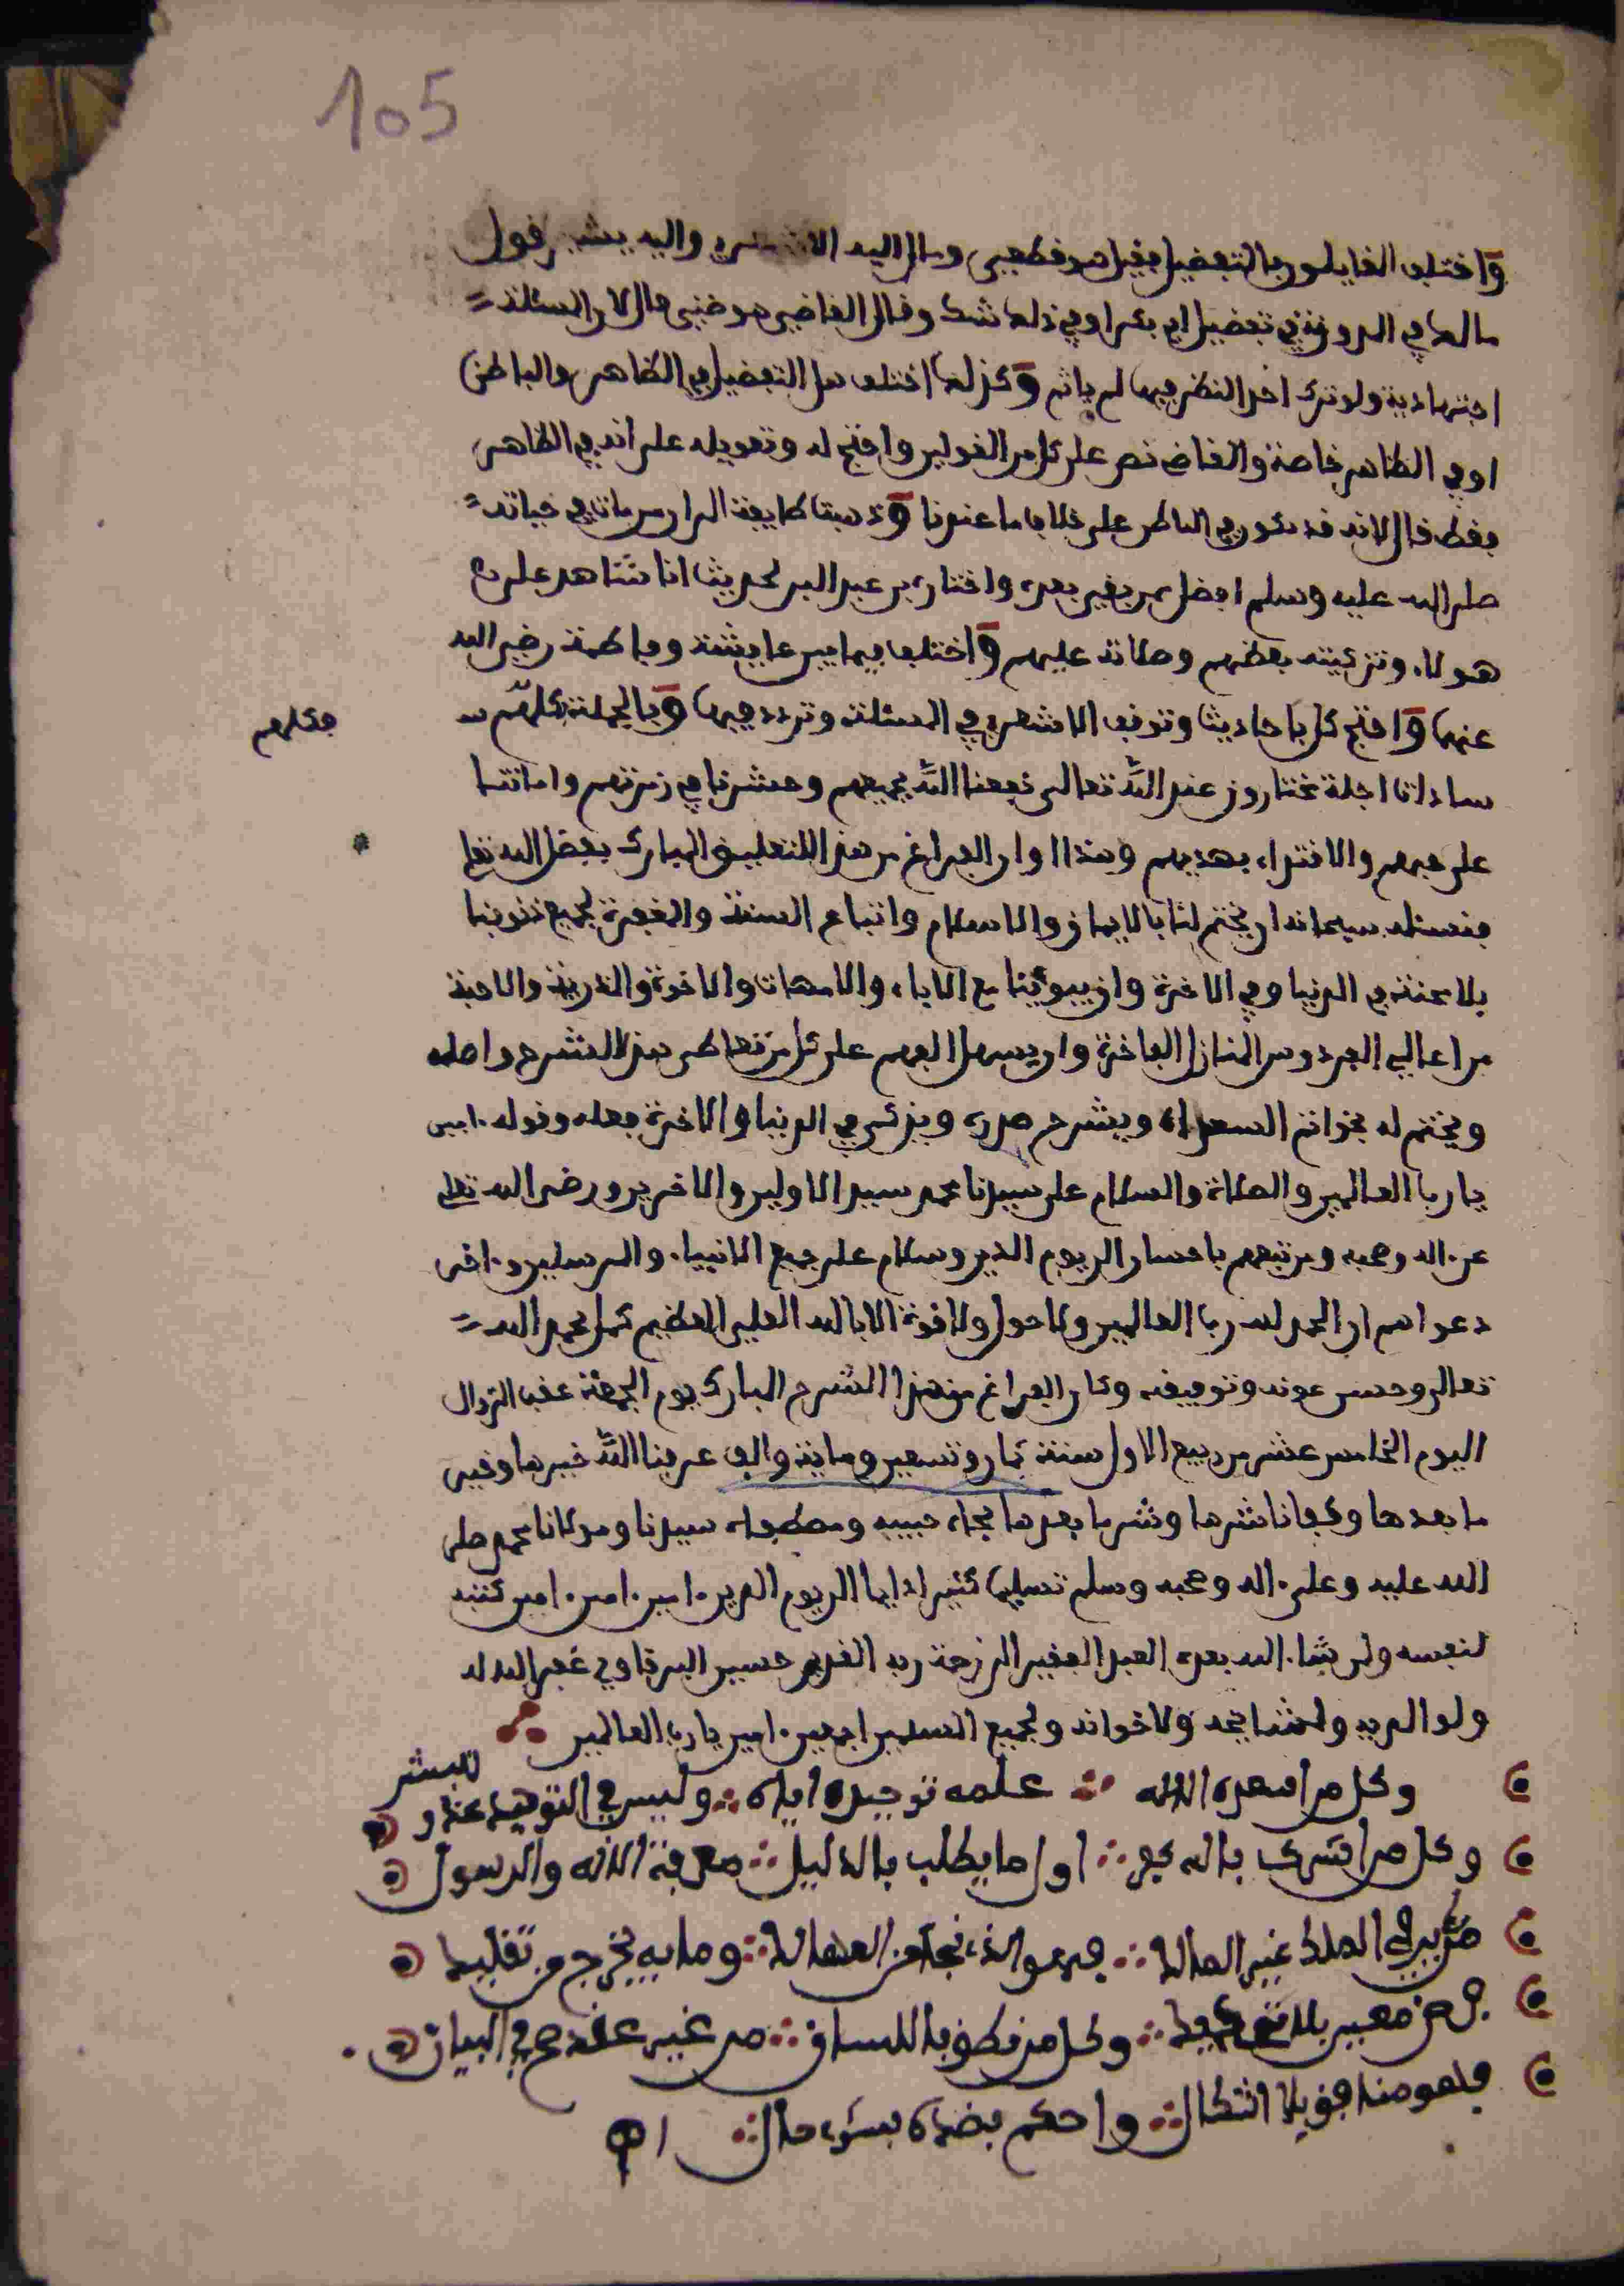 105
واختلف القايلون بالتفضيل فقيل هو قطعي ومال اليه الاشعري واليه يشير قول
مالك في المدونة في تفضيل ابي بكر اوفي ذلك شك وقال القاضي هو ظني قال لان المسئلة
اجتهادية ولو ترك احد النظر فيها لم ياثم وكذلك اختلف هل التفضيل في الظاهر والباطن
او في الظاهر خاصة والقاضي نص على كل من القولين واحتج له وتعويله على انه في الظاهر
فقط قال لانه قد يكون في الباطن على خلاف ما عندنا وذهبت طايفة الى ان من مات في حياته
صلى الله عليه وسلم افضل ممن بقي بعده واختاره بن عبد البر لحديث انا شاهد على
هولاء وتزكيته بعضهم وصلاته عليهم واختلف فيما بين عايشة وفاطمة رضي الله
عنهما واحتج كل باحاديث وتوقف الاشعري في المسئلة وتردد فيها وبالجملة فكلهم
فكلهم
ساداتنا اجلة مختارون عند الله تعالى نفعنا الله بجميعهم وحشرنا في زمرتهم واماتنا
على حبهم والاقتداء بهديهم وهذا اوان الفراغ من هذا التعليق المبارك بفضل الله تعلى
فنسئله سبحانه ان يختم لنا بالايمان والاسلام واتباع السنة والمغفرة لجميع ذنوبنا
بلا محنة في الدنيا وفي الاخرة وان يبوئنا مع الاباء والامهات والاخوة والذرية والاحبة
من اعالي الفردوس المنازل الفاخرة وان يسهل الفهم على كل من تعاطى هذا الشرح واصله
ويختم له بخواتم السعداء ويشرح صدره ويزكي في الدنيا والاخرة فعله وقوله امين
يا رب العالمين والصلاة والسلام على سيدنا محمد سيد الاولين والاخرين ورضي الله تعلى
عن اله وصحبه ومن تبعهم باحسان الى يوم الدين وسلام على جميع الانبياء والمرسلين واخر
دعواهم ان الحمد لله رب العالمين ولا حول ولا قوة الا بالله العلي العظيم كمل بحمد الله
تعالى وحسن عونه وتوفيقه وكان الفراغ من هذا الشرح المبارك يوم الجمعة عقب الزوال
اليوم الخامس عشر من ربيع الاول سنة ثمان وتسعين وماية والف عرفنا الله خيرها وخير
ما بعدها وكفانا شرها وشر ما بعدها بجاه حبيبه ومصطفاه سيدنا ومولانا محمد صلى
الله عليه وعلى اله وصحبه وسلم تسليما كثيرا دايما الى يوم الدين امين امين امين كتبه
لنفسه ولمن شاء الله بعده العبد الفقير الى رحمة ربه القدير حسين البرقاوي غفر الله له
ولوالديه ولمشايخه ولاخوانه ولجميع المسلمين اجمعين امين يا رب العالمين
وكل من اسعده الاله علمه توحيده اياه وليس في التوحيد عذر للبشر
وكل من اشرك بالله كفر اول ما يطلب بالدليل معرفة الاله والرسول
غير المحاله فهو الذي نجا من الجهاله وما به يخرج من تقليد
وكل من نطق باللسان من غير عقد صح في البيان
فهو منافق بلا اشكال واحكم بضده بسوء حال اه